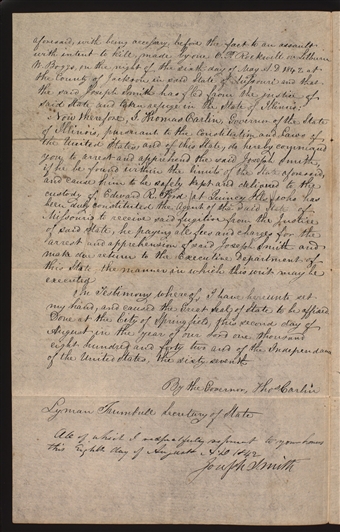 aforesaid, with being accessory, before the fact to an assault
with intent to kill, made by one O. P. Rockwell on Lilburn
W. Boggs, on the night of the sixth day of May A.D. 1842, at
the County of Jackson in said State of Missouri and that
the said Joseph Smith has fled from the justice of
said State and taken refuge in the State of Illinois;
Now therefore, I, Thomas Carlin, Governor of the State
of Illinois, pursuant to the Constitution and Laws of
the United States and of this State, do hereby command
you to arrest and apprehend the said Joseph Smith,
if he be found within the limits of the State aforesaid,
and cause him to be safely kept and delivered to the
custody of Edward R. Ford, at Quincy Ills, who has
been duly constituted the Agent of the said State of
Missouri to receive said fugitive from the Justice
of said State, he paying all fees and charges for the
arrest and apprehension of said Joseph Smith and
make due return to the Executive department of
this State, the manner in which this writ may be
executed.
In Testimony whereof, I have hereunto set
my hand, and caused the Great Seal of State to be affixed
Done at the City of Springfield, this second day of
August in the year of our Lord one thousand
eight hundred and forty two and of the Independence
of the United States, the sixty seventh.
By the Governor, Thos Carlin
Lyman Trumbull Secretary of State
All of which I respectfully submit to your honor
this eighth day of August A.D. 1842
Joseph Smith